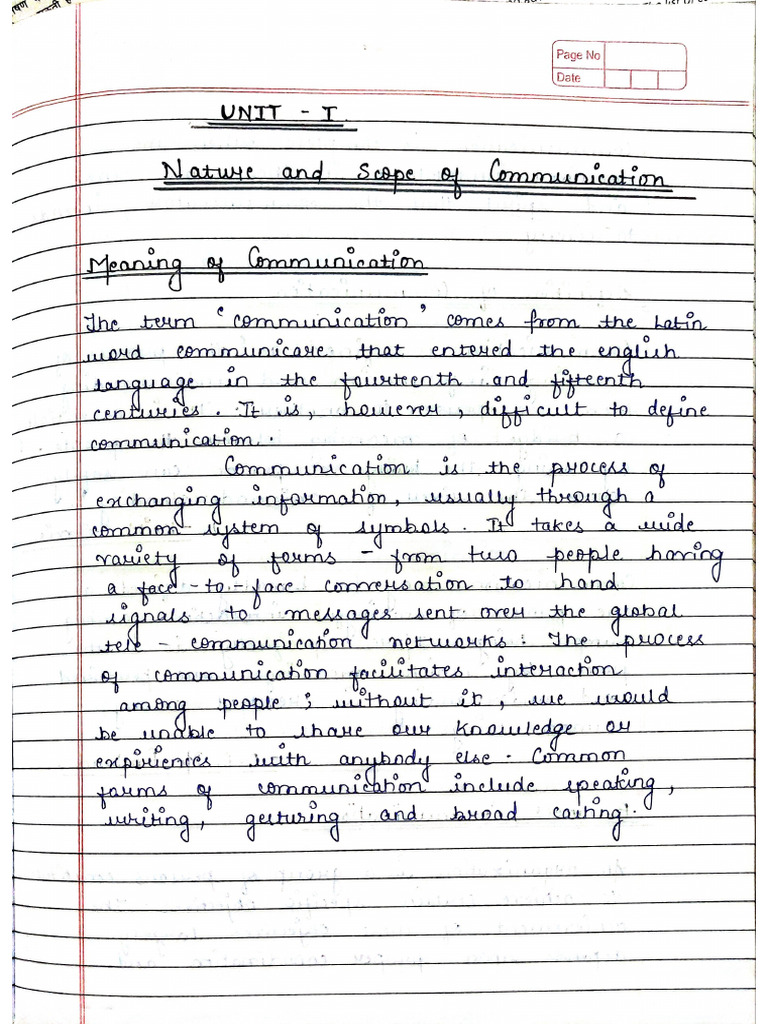 Page No
Date
UNIT - I
Nature and Scope of Communication
Meaning of Communication
The term 'communication' comes from the Latin
word communicare that entered the english
language in the fourteenth and fifteenth
centuries. It is, however, difficult to define
communication.
Communication is the process of
exchanging information, usually through a
common system of symbols. It takes a wide
variety of forms - from two people having
a face-to-face conversation to hand
signals to messages sent over the global
tele-communication networks. The process
of communication facilitates interaction
among people; without it, we would
be unable to share our knowledge or
expiriences with anybody else. Common
forms of communication include speaking,
writing, gesturing and broad casting.